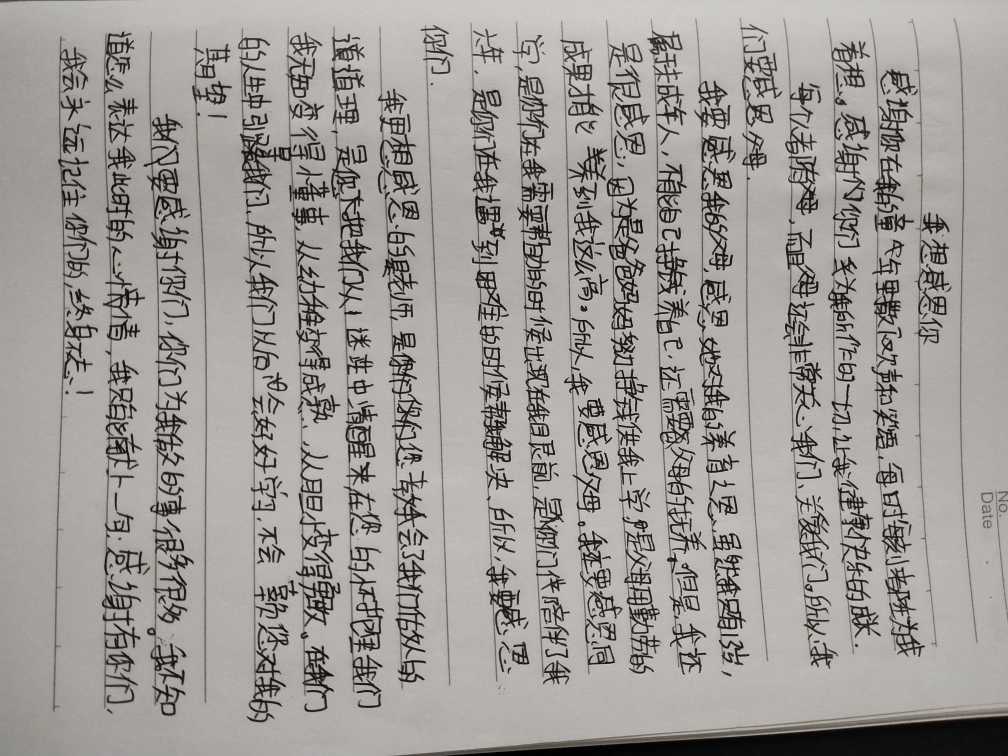 No.
Date
我想感恩你
感谢你在我的童年里散下欢声和笑语,每时每刻都为我
着想。感谢你们多为我所作的一切,让我健事快乐的成长.
每个人者陪父母,而且父母还会非常关心我们、关爱我们。所以,我
们要感恩父母
我要感恩我的父母,感恩她对我的养育之恩、虽然我只有13岁,
属于未成年人,不能自己挣钱养自己,还需要父母的抚养,但是,我还
是很感恩,因为是爸爸妈妈努力挣钱供我上学,是父母用勤劳的
成果才能养到我这么高。所以,我要感恩父母。我还要感恩同
学,是你们在我需要帮助的时候出现在我目艮前,是你们伴陪伴了我
六年,是你们在我遇到困难的时候帮我解决、所以,我要感恩
你们.
我更相感恩的是老师,是你们你们您告诉会了我们任处的
道道理,是您不把我们从迷茫中清醒来在您的心中把里我们
我从如变得懂事,从幼稚变得成熟、从胆小变得勇敢、在我们
的人生中引导我们、所以我们以后也会好好学习,不会辜负您对我的
其目望!
我们要感谢你们,你们为我做的事很多很多。我不知
道怎么表达我此时的心情情,我只能献上一句:感谢有你们,
我会永远记住你们的,终身难忘!